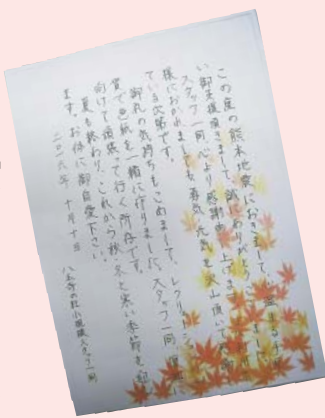 この度の熊本地震におきまして、
い御支援頂きまして誠にありがとうございました
スタッフ一同、心より感謝申し上げます。
様におかれましても勇気、元気を沢山頂いて
ている次第です。
御礼の気持ちもこめまして、レクリ
貴で色紙を一緒に作りました。スタッフ一同
向けて頑張って行く所存です。
夏も終わり、これから秋、冬と寒い季節を迎
ます。お体に御自愛下さい。
二〇一六年 十月十日
小規模スタッフ一同